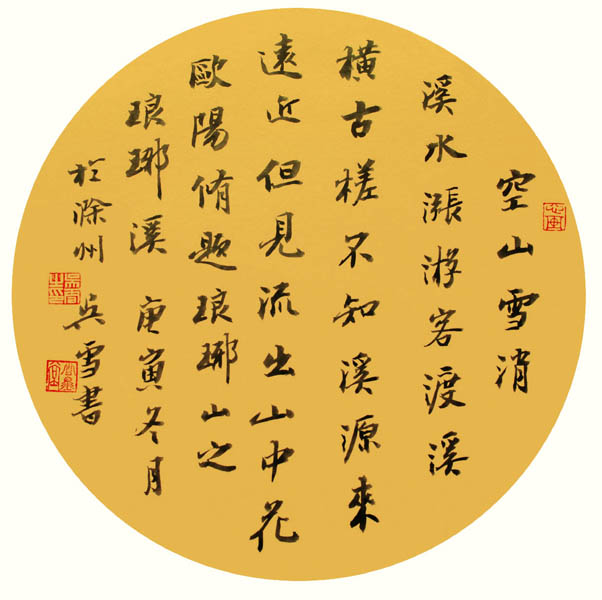 空山雪消
溪水漲游客渡溪
橫古槎不知溪源來
遠近但見流出山中花
歐陽脩題琅琊山之
琅琊溪 庚寅冬月
於滁州 吳雪書